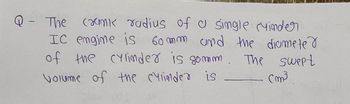 Q - The crank radius of a single cylinder
IC engine is 60 mm and the diameter
of the cylinder is 80mm. The swept
volume of the cylinder is ____ cm³